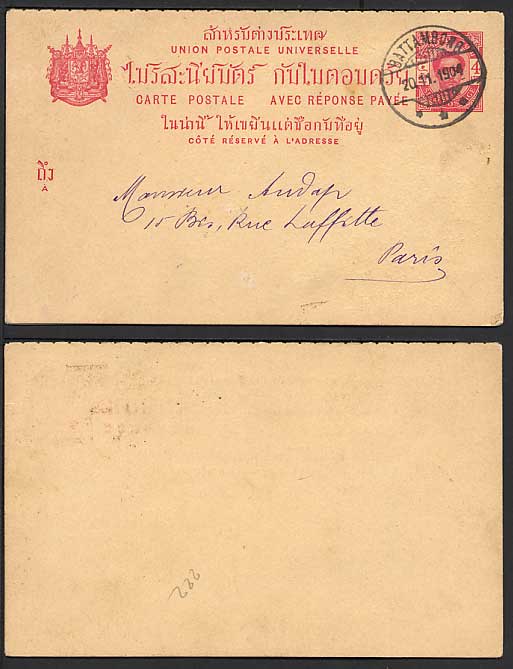 สำหรับต่างประเทศ
UNION POSTALE UNIVERSELLE
ไปรสะนียบัตร์ กับใบตอบด้วย
CARTE POSTALE AVEC RÉPONSE PAYÉE
ในน่านี้ ให้เขียนแต่ชื่อกับที่อยู่
CÔTÉ RÉSERVÉ À L'ADRESSE
BATTAMBONG
20.11.1904
ถึง
A
Monsieur Audap
15 Bis, Rue Laffitte
Paris
222